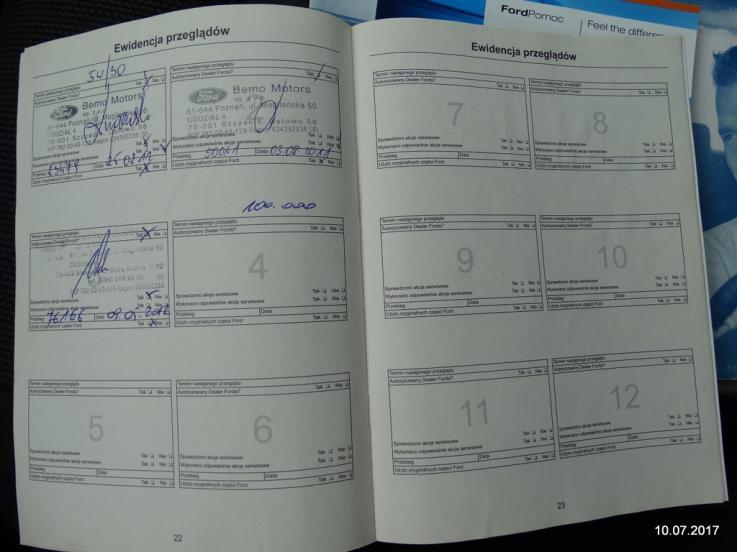 FordPomoc
Feel the differen
Ewidencja przeglądów
5W/30
Termin następnego przeglądu
Autoryzowany Dealer Forda? Tak Nie
Ford
Bemo Motors
61-044 Poznań, ul.
ODDZIAŁ 4
70-001 Szczecin, Ustowo 56
Sprawdzono akcje serwisowe Tak Nie
Wykonano odpowiednie akcje serwisowe Tak Nie
Przebieg Data
Użyto oryginalnych części Ford Tak Nie
Termin następnego przeglądu
Autoryzowany Dealer Forda? Tak Nie
Ford
Bemo Motors
61-044 Poznań, ul. Opłotki 50
ODDZIAŁ 4
70-001 Szczecin, Ustowo 56
Sprawdzono akcje serwisowe Tak Nie
Wykonano odpowiednie akcje serwisowe Tak Nie
Przebieg 50061 Data 03.08.2011
Użyto oryginalnych części Ford Tak Nie
100.000
Termin następnego przeglądu
Autoryzowany Dealer Forda? Tak Nie
Sprawdzono akcje serwisowe Tak Nie
Wykonano odpowiednie akcje serwisowe Tak Nie
Przebieg 76166 Data
Użyto oryginalnych części Ford Tak Nie
Termin następnego przeglądu
Autoryzowany Dealer Forda? Tak Nie
4
Sprawdzono akcje serwisowe Tak Nie
Wykonano odpowiednie akcje serwisowe Tak Nie
Przebieg Data
Użyto oryginalnych części Ford Tak Nie
Termin następnego przeglądu
Autoryzowany Dealer Forda? Tak Nie
5
Sprawdzono akcje serwisowe Tak Nie
Wykonano odpowiednie akcje serwisowe Tak Nie
Przebieg Data
Użyto oryginalnych części Ford Tak Nie
Termin następnego przeglądu
Autoryzowany Dealer Forda? Tak Nie
6
Sprawdzono akcje serwisowe Tak Nie
Wykonano odpowiednie akcje serwisowe Tak Nie
Przebieg Data
Użyto oryginalnych części Ford Tak Nie
22
Ewidencja przeglądów
Termin następnego przeglądu
Autoryzowany Dealer Forda? Tak Nie
7
Sprawdzono akcje serwisowe Tak Nie
Wykonano odpowiednie akcje serwisowe Tak Nie
Przebieg Data
Użyto oryginalnych części Ford Tak Nie
Termin następnego przeglądu
Autoryzowany Dealer Forda? Tak Nie
8
Sprawdzono akcje serwisowe Tak Nie
Wykonano odpowiednie akcje serwisowe Tak Nie
Przebieg Data
Użyto oryginalnych części Ford Tak Nie
Termin następnego przeglądu
Autoryzowany Dealer Forda? Tak Nie
9
Sprawdzono akcje serwisowe Tak Nie
Wykonano odpowiednie akcje serwisowe Tak Nie
Przebieg Data
Użyto oryginalnych części Ford Tak Nie
Termin następnego przeglądu
Autoryzowany Dealer Forda? Tak Nie
10
Sprawdzono akcje serwisowe Tak Nie
Wykonano odpowiednie akcje serwisowe Tak Nie
Przebieg Data
Użyto oryginalnych części Ford Tak Nie
Termin następnego przeglądu
Autoryzowany Dealer Forda? Tak Nie
11
Sprawdzono akcje serwisowe Tak Nie
Wykonano odpowiednie akcje serwisowe Tak Nie
Przebieg Data
Użyto oryginalnych części Ford Tak Nie
Termin następnego przeglądu
Autoryzowany Dealer Forda? Tak Nie
12
Sprawdzono akcje serwisowe Tak Nie
Wykonano odpowiednie akcje serwisowe Tak Nie
Przebieg Data
Użyto oryginalnych części Ford Tak Nie
23
10.07.2017